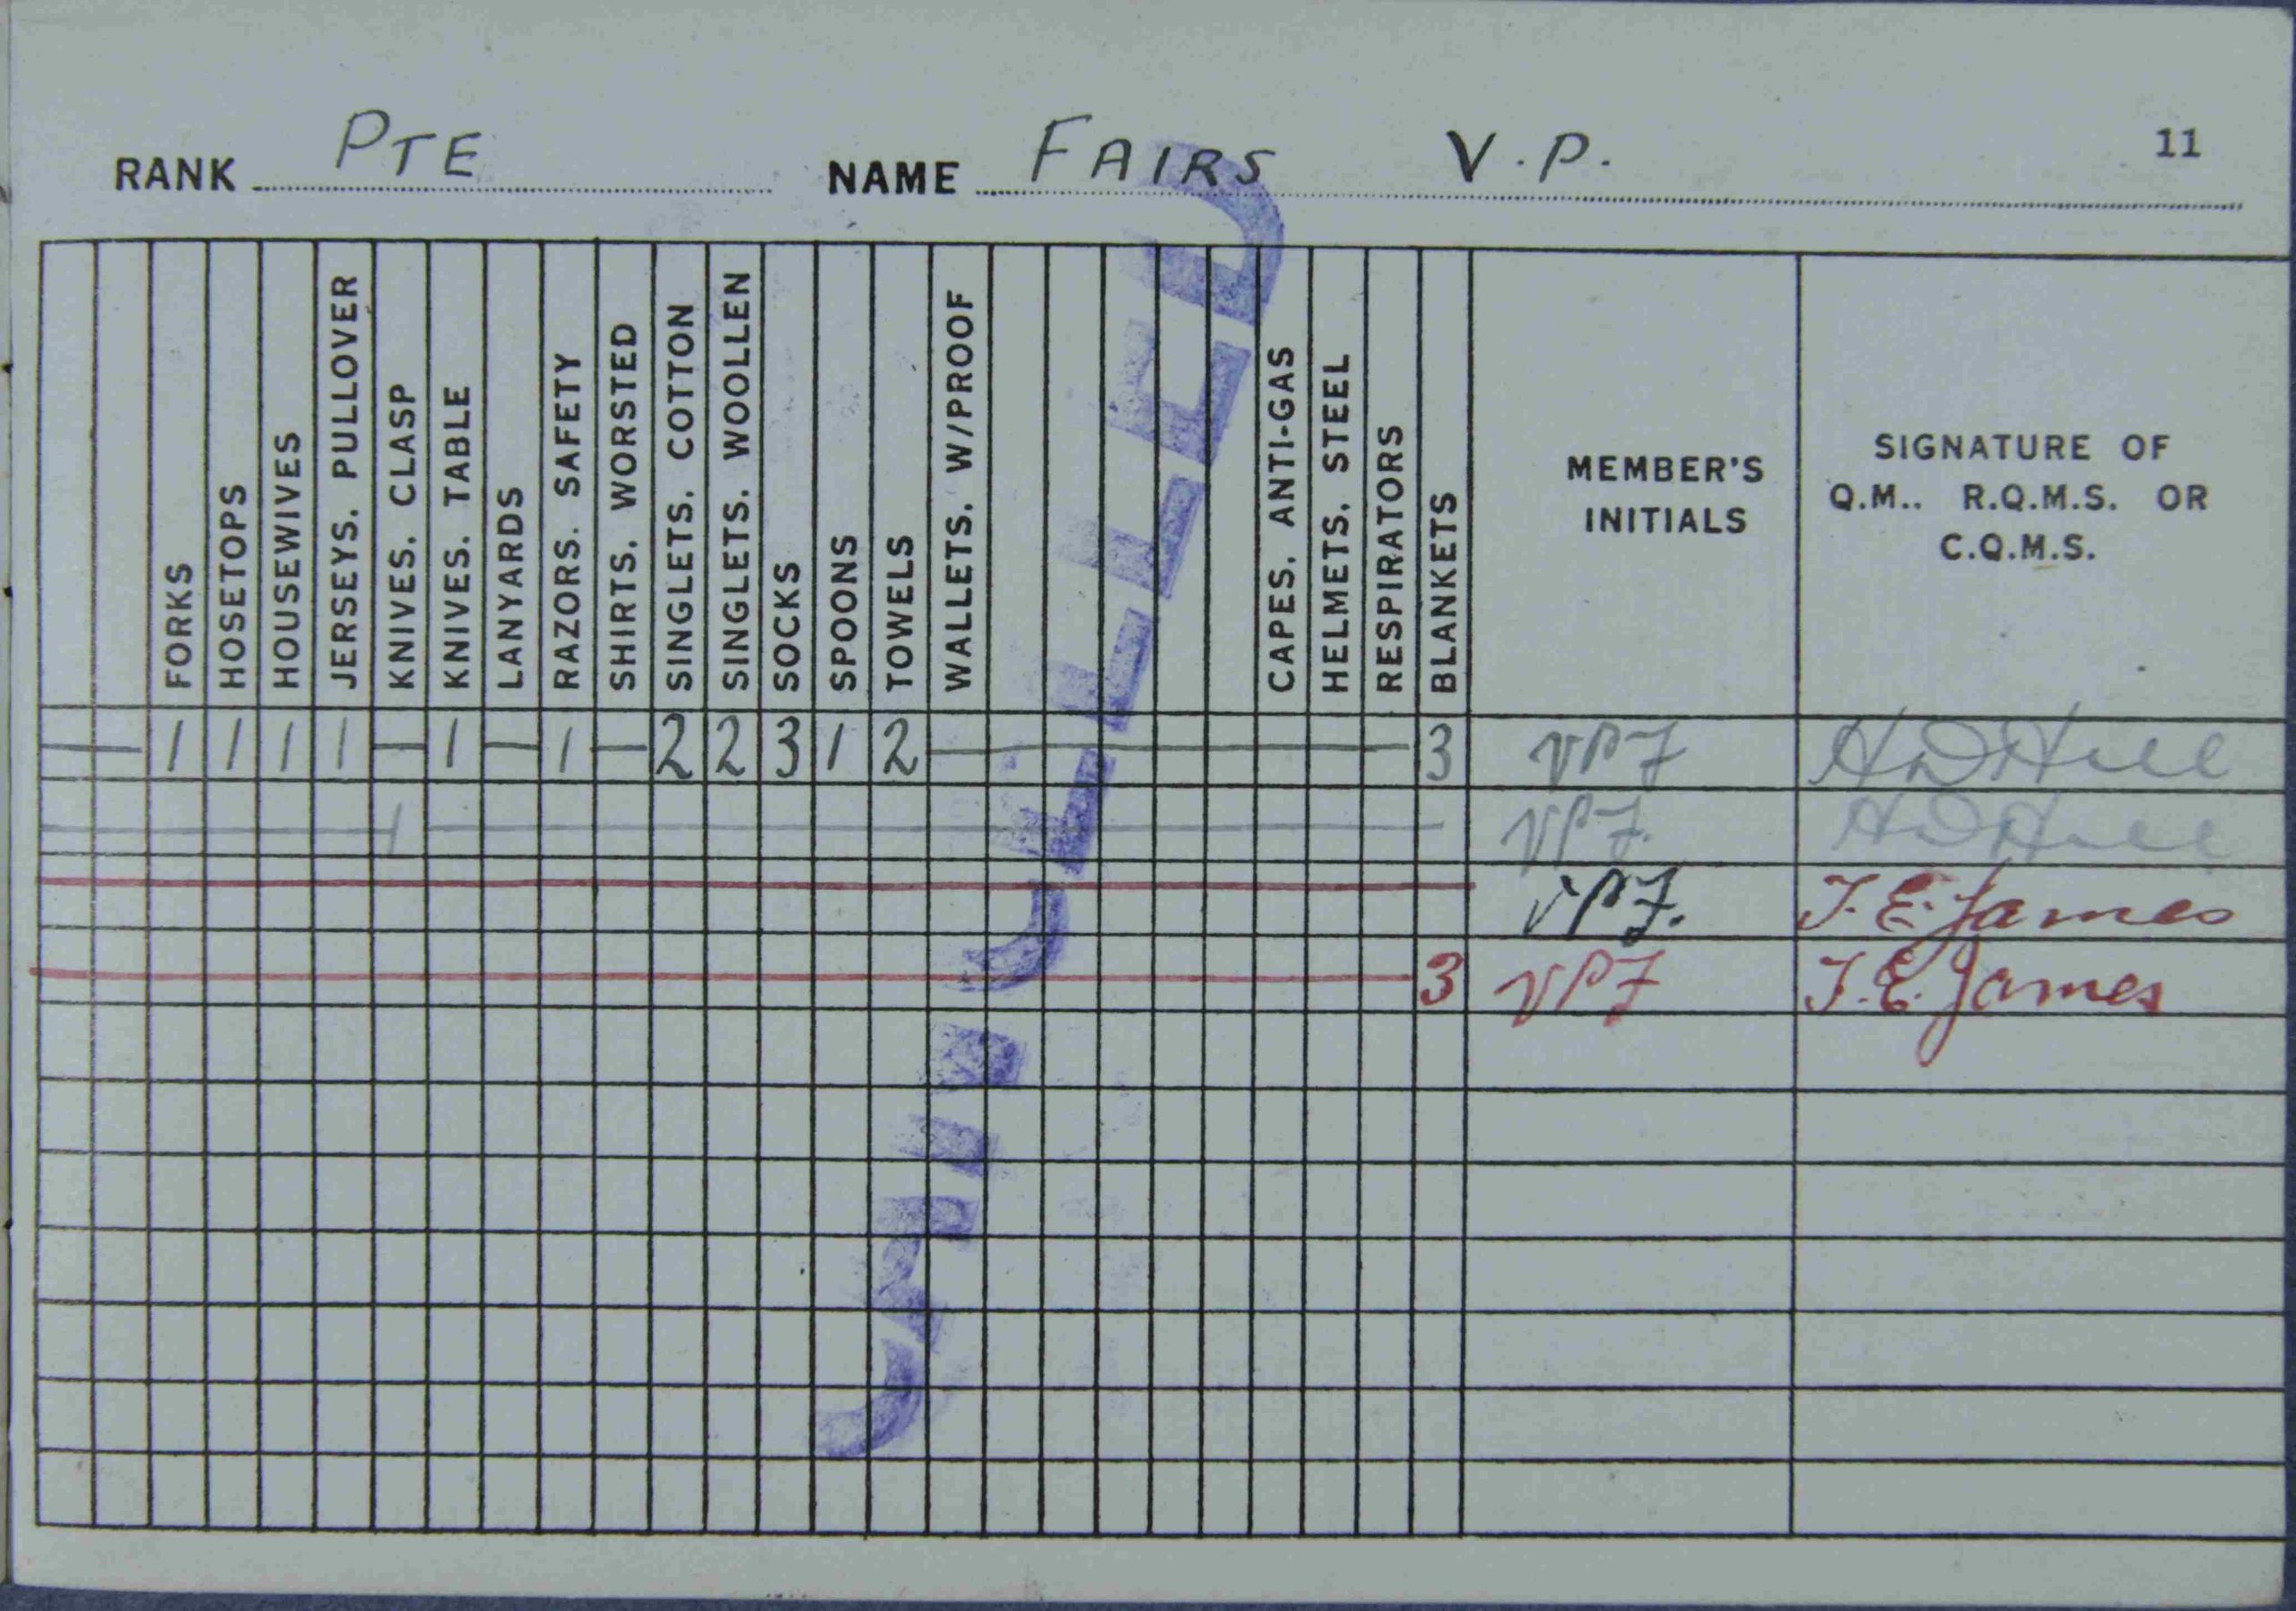 11
RANK PTE NAME FAIRS V.P.
FORKS
HOSETOPS
HOUSEWIVES
JERSEYS, PULLOVER
KNIVES, CLASP
KNIVES, TABLE
LANYARDS
RAZORS, SAFETY
SHIRTS, WORSTED
SINGLETS, COTTON
SINGLETS, WOOLLEN
SOCKS
SPOONS
TOWELS
WALLETS, W/PROOF
CAPES, ANTI-GAS
HELMETS, STEEL
RESPIRATORS
BLANKETS
MEMBER'S
INITIALS
SIGNATURE OF
Q.M., R.Q.M.S. OR
C.Q.M.S.
— 1 1 1 1 — 1 — 1 — 2 2 3 1 2 — 3 VPF HDHill
— 1 — VPF. HDHill
— VPF. T.E. James
— 3 VPF T.E. James
CANCELLED